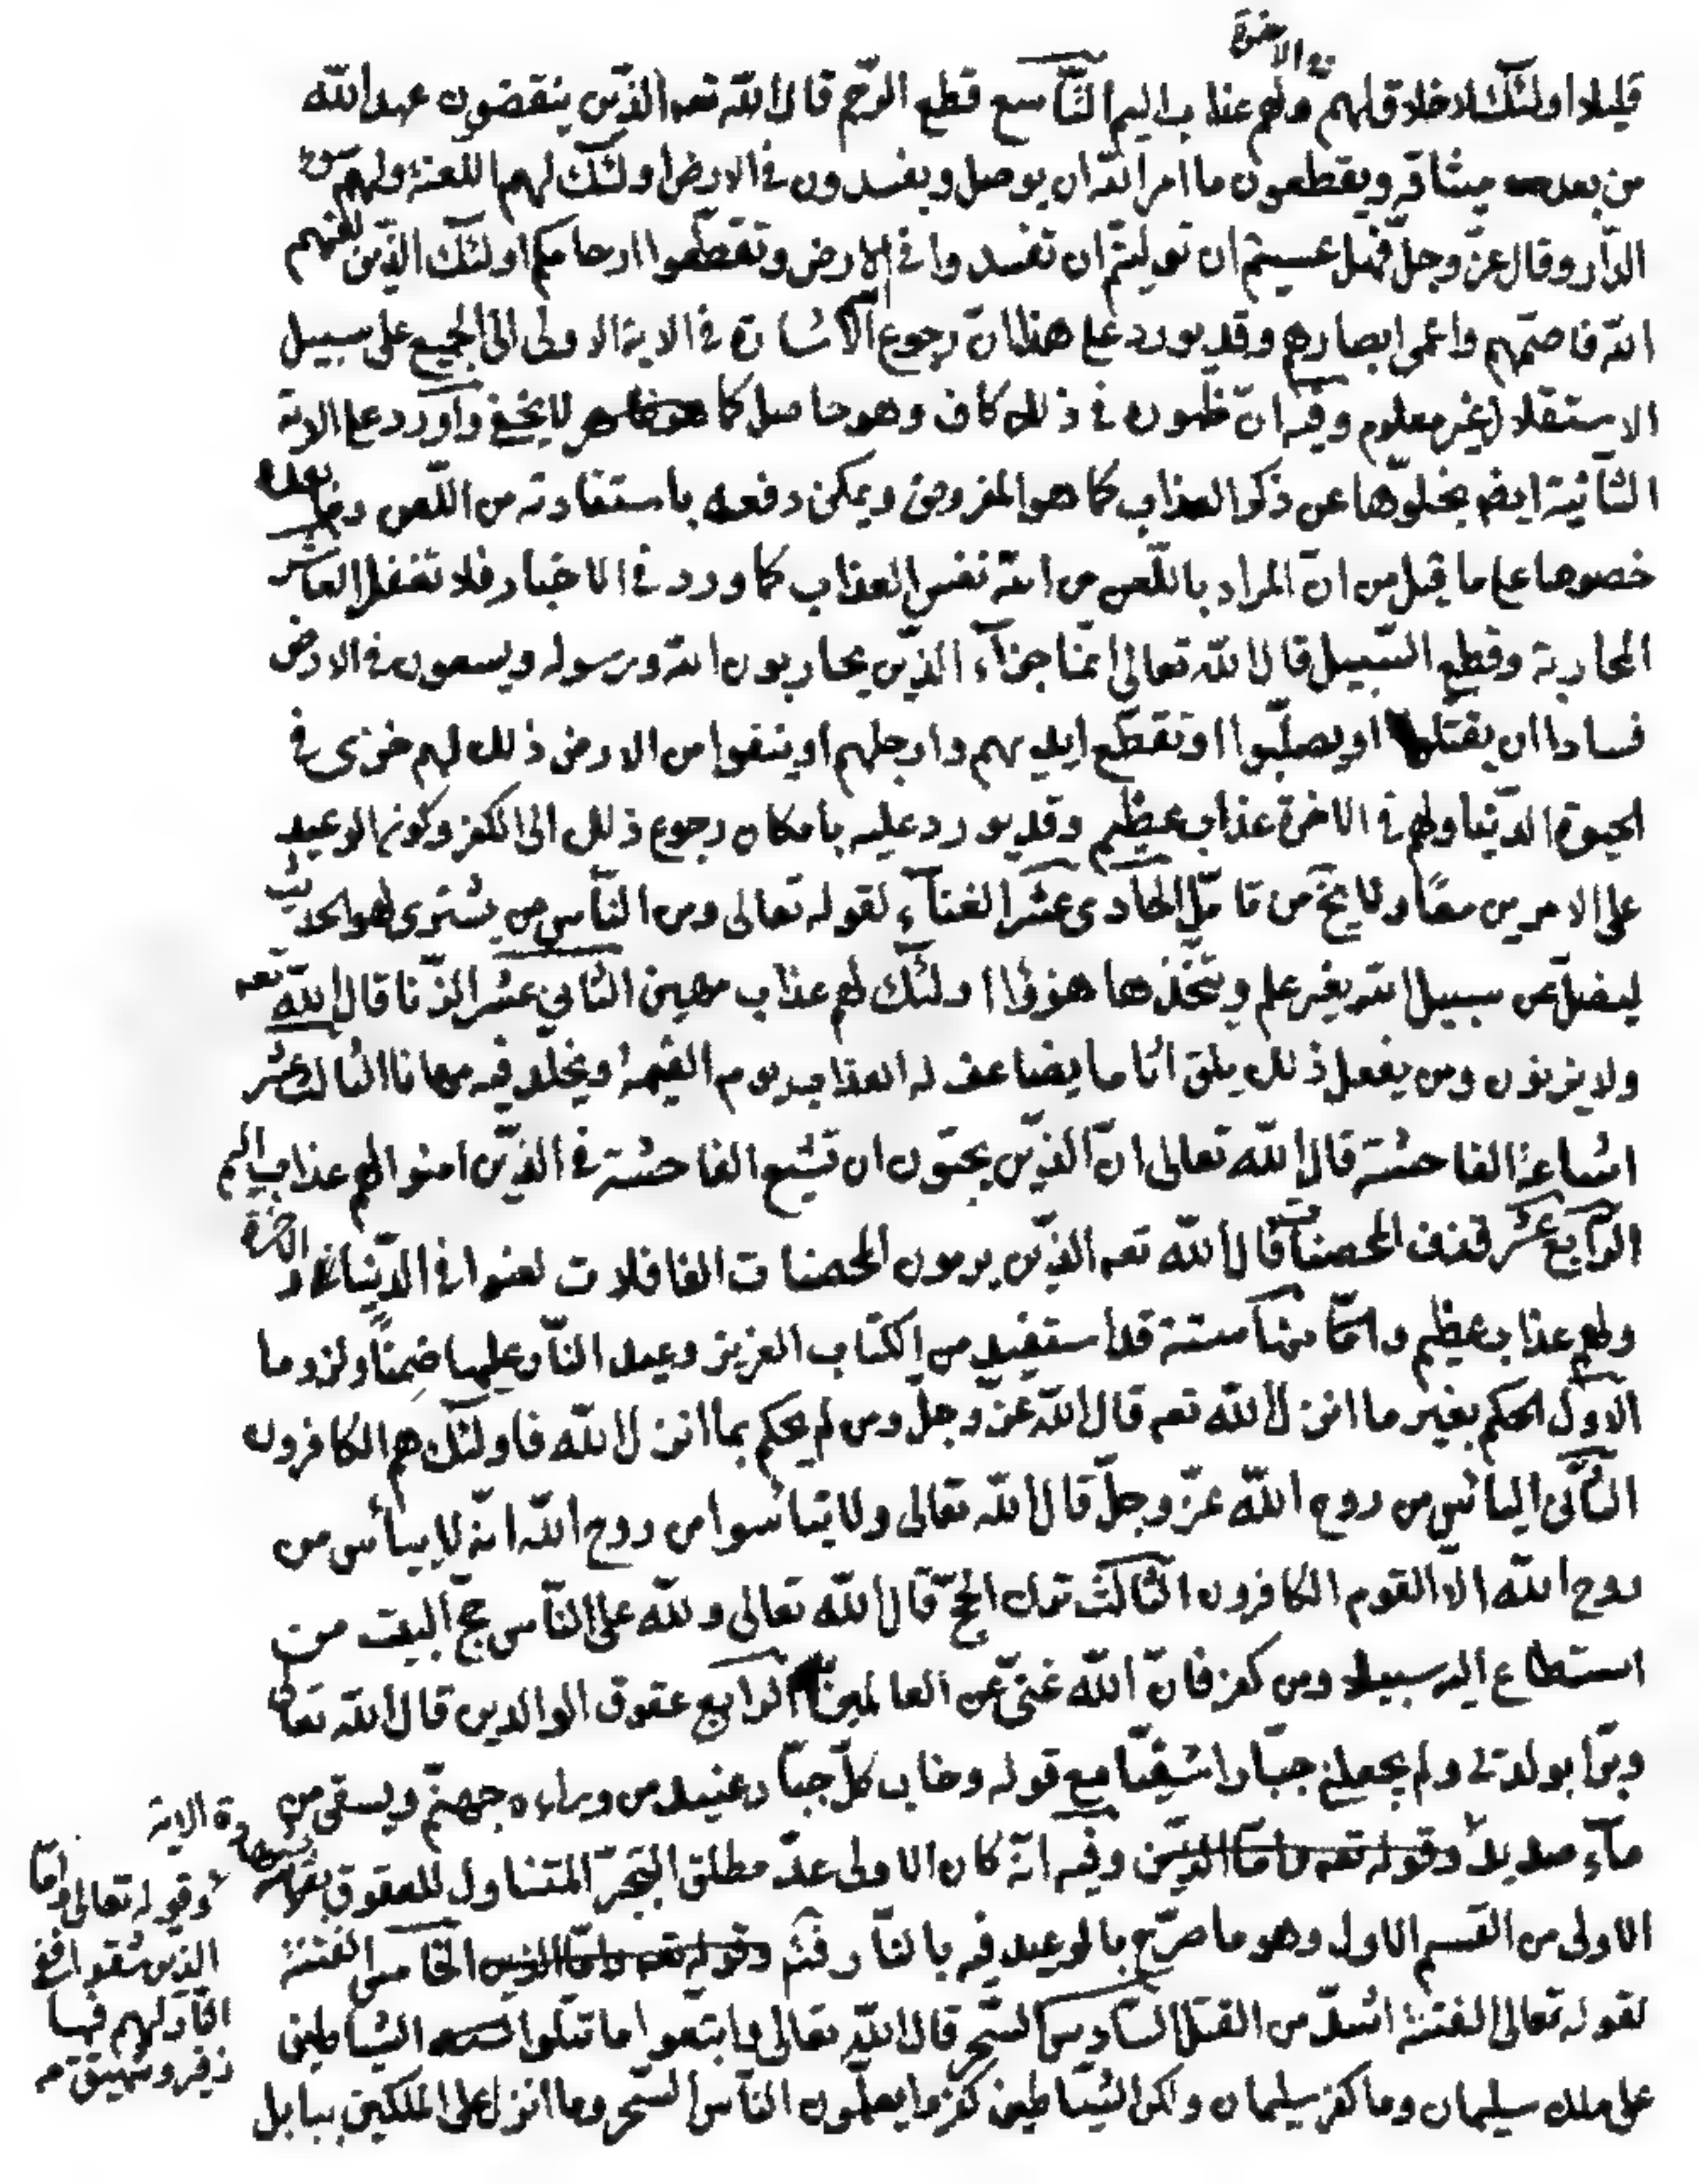 في الاخرة
قليلا اولئك لاخلاق لهم ولهم عذاب اليم التاسع قطع الرحم قال الله تعه الذين ينقضون عهد الله
من بعد ميثاقه ويقطعون ما امر الله ان يوصل ويفسدون في الارض اولئك لهم اللعنة ولهم سوء
الدار وقال عزّ وجلّ فهل عسيتم ان توليتم ان تفسدوا في الارض وتقطّعوا ارحامكم اولئك الذين لعنهم
الله فاصمّهم واعمى ابصارهم وقد يورد على هذا انّ رجوع الاشارة في الاية الاولى الى الجميع على سبيل
الاستقلال غير معلوم وفيه انّ ظهوره في ذلك كاف وهو حاصل كما لا يخفى واورد على الاية
الثانية ايضا بخلوّها عن ذكر العذاب كما هو المفروض ويمكن دفعه باستفادته من اللّعن وما بعده
خصوصا على ما قيل من انّ المراد باللّعن من الله نفس العذاب كما ورد في الاخبار فلا تغفل العاشر
المحاربة وقطع السّبيل قال الله تعالى انّما جزآء الذين يحاربون الله ورسوله ويسعون في الارض
فسادا ان يقتلوا او يصلّبوا او تقطّع ايديهم وارجلهم او ينفوا من الارض ذلك لهم خزى في
الحيوة الدّنيا ولهم في الاخرة عذاب عظيم وقد يورد عليه بامكان رجوع ذلك الى الكفر وكونه الوعيد
على الامرين معًا ولا يخ من تامّل الحادى عشر الغنآء لقوله تعالى ومن النّاس من يشترى لهو الحديث
ليضلّ عن سبيل الله بغير علم ويتّخذها هزوا اولئك لهم عذاب مهين الثاني عشر الزّنا قال الله تعه
ولا يزنون ومن يفعل ذلك يلق اثاما يضاعف له العذاب يوم القيمة ويخلد فيه مهانا الثالث عشر
اشاعة الفاحشة قال الله تعالى انّ الذين يحبّون ان تشيع الفاحشة في الذين امنوا لهم عذاب اليم
الرابع عشر قذف المحصنات قال الله تعه الذين يرمون المحصنات الغافلات لعنوا في الدّنيا والاخرة
ولهم عذاب عظيم وامّا منها ستة قد استفيد من الكتاب العزيز وعيد النّار عليها ضمنًا ولزوما
الاوّل الحكم بغير ما انزل الله تعه قال الله عزّ وجلّ ومن لم يحكم بما انزل الله فاولئك هم الكافرون
الثّانى اليائس من روح الله عزّ وجلّ قال الله تعالى ولا تيأسوا من روح الله انه لا ييأس من
روح الله الا القوم الكافرون الثالث ترك الحجّ قال الله تعالى ولله على النّاس حجّ البيت من
استطاع اليه سبيلا ومن كفر فانّ الله غنىّ عن العالمين الرابع عقوق الوالدين قال الله تعالى
وبرّا بوالدتى ولم يجعلنى جبّارا شقيّا مع قوله وخاب كلّ جبّار عنيد من ورائه جهنّم ويسقى من
مآء صديد وقوله تعه وامّا الذين وفيه انّه كان الاولى عدّ مطلق التجبّر المتناول للعقوق
الاولى من القسم الاول وهو ما صرّح بالوعيد فيه بالنّار فتمّ وقوله تعه وامّا الذين الخامس الفتنة
لقوله تعالى الفتنة اشدّ من القتل السّادس السّحر قال الله تعالى واتبعوا ما تتلوا الشياطين
على ملك سليمان وما كفر سليمان ولكن الشّياطين كفروا يعلّمون النّاس السّحر وما انزل على الملكين ببابل
الاية
وقوله تعالى وامّا
الذين شقوا ففى
النّار لهم فيها
زفير وشهيق